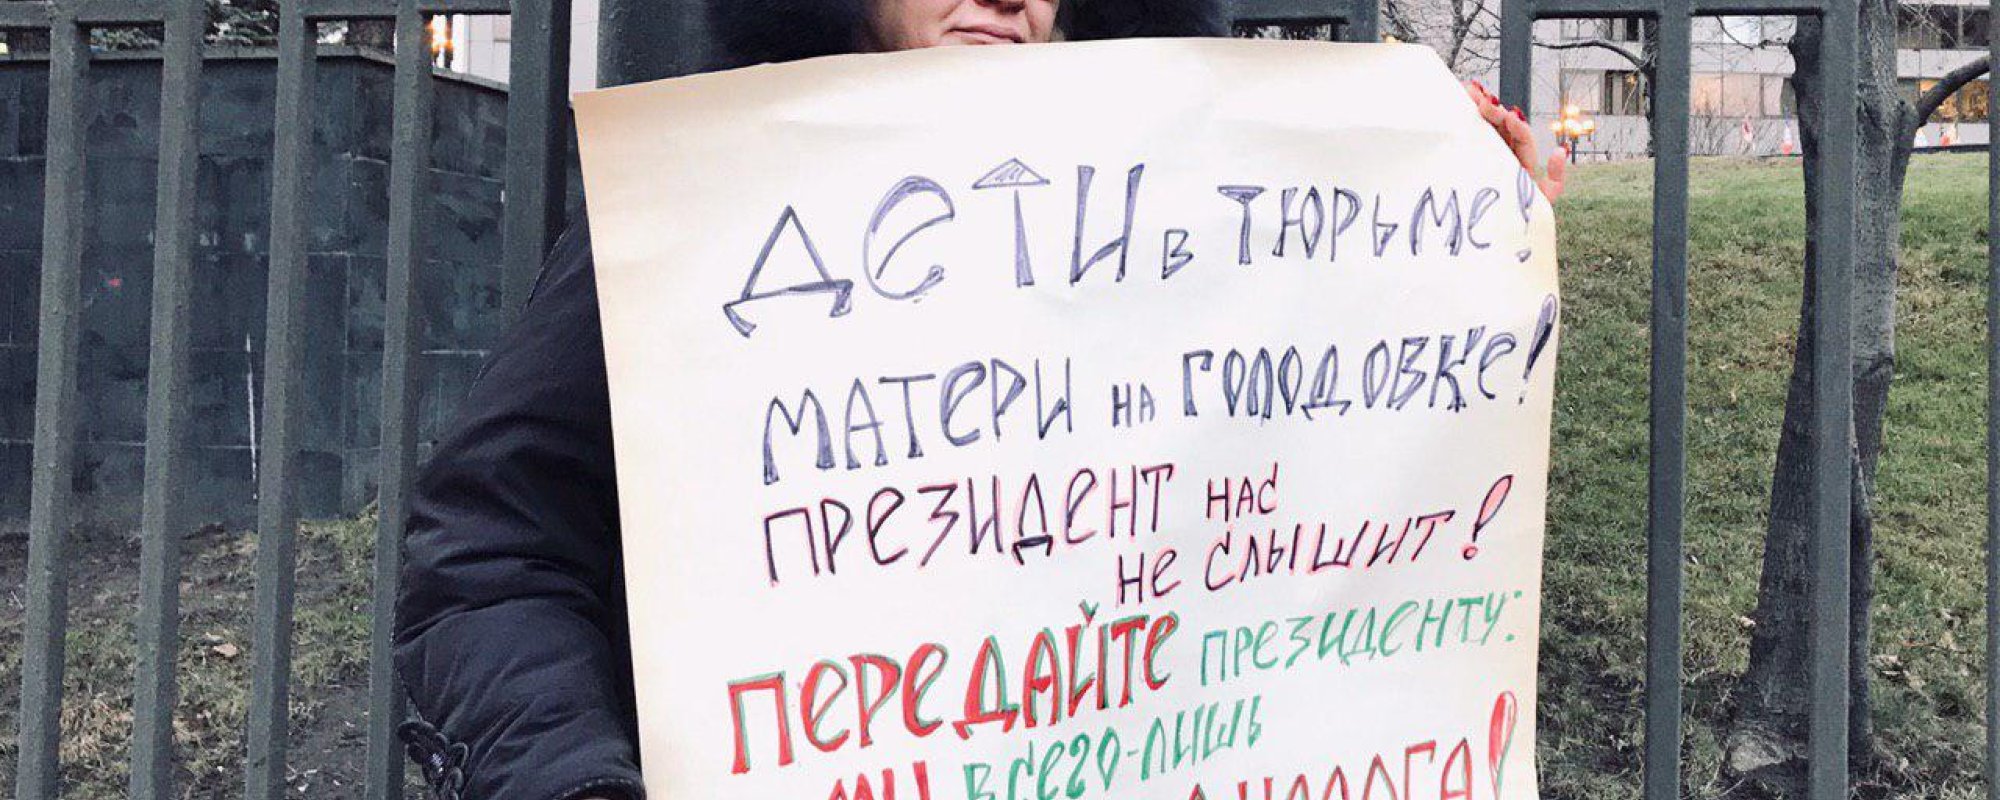 ДЕТИ в ТЮРЬМЕ!
МАТЕРИ НА ГОЛОДОВКЕ!
ПРЕЗИДЕНТ НАС
НЕ СЛЫШИТ!
ПЕРЕДАЙТЕ ПРЕЗИДЕНТУ:
МЫ ВСЕГО-ЛИШЬ